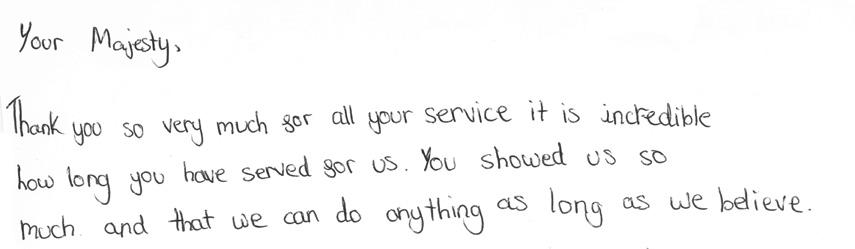 Your Majesty,
Thank you so very much for all your service it is incredible
how long you have served for us. You showed us so
much. and that we can do anything as long as we believe.